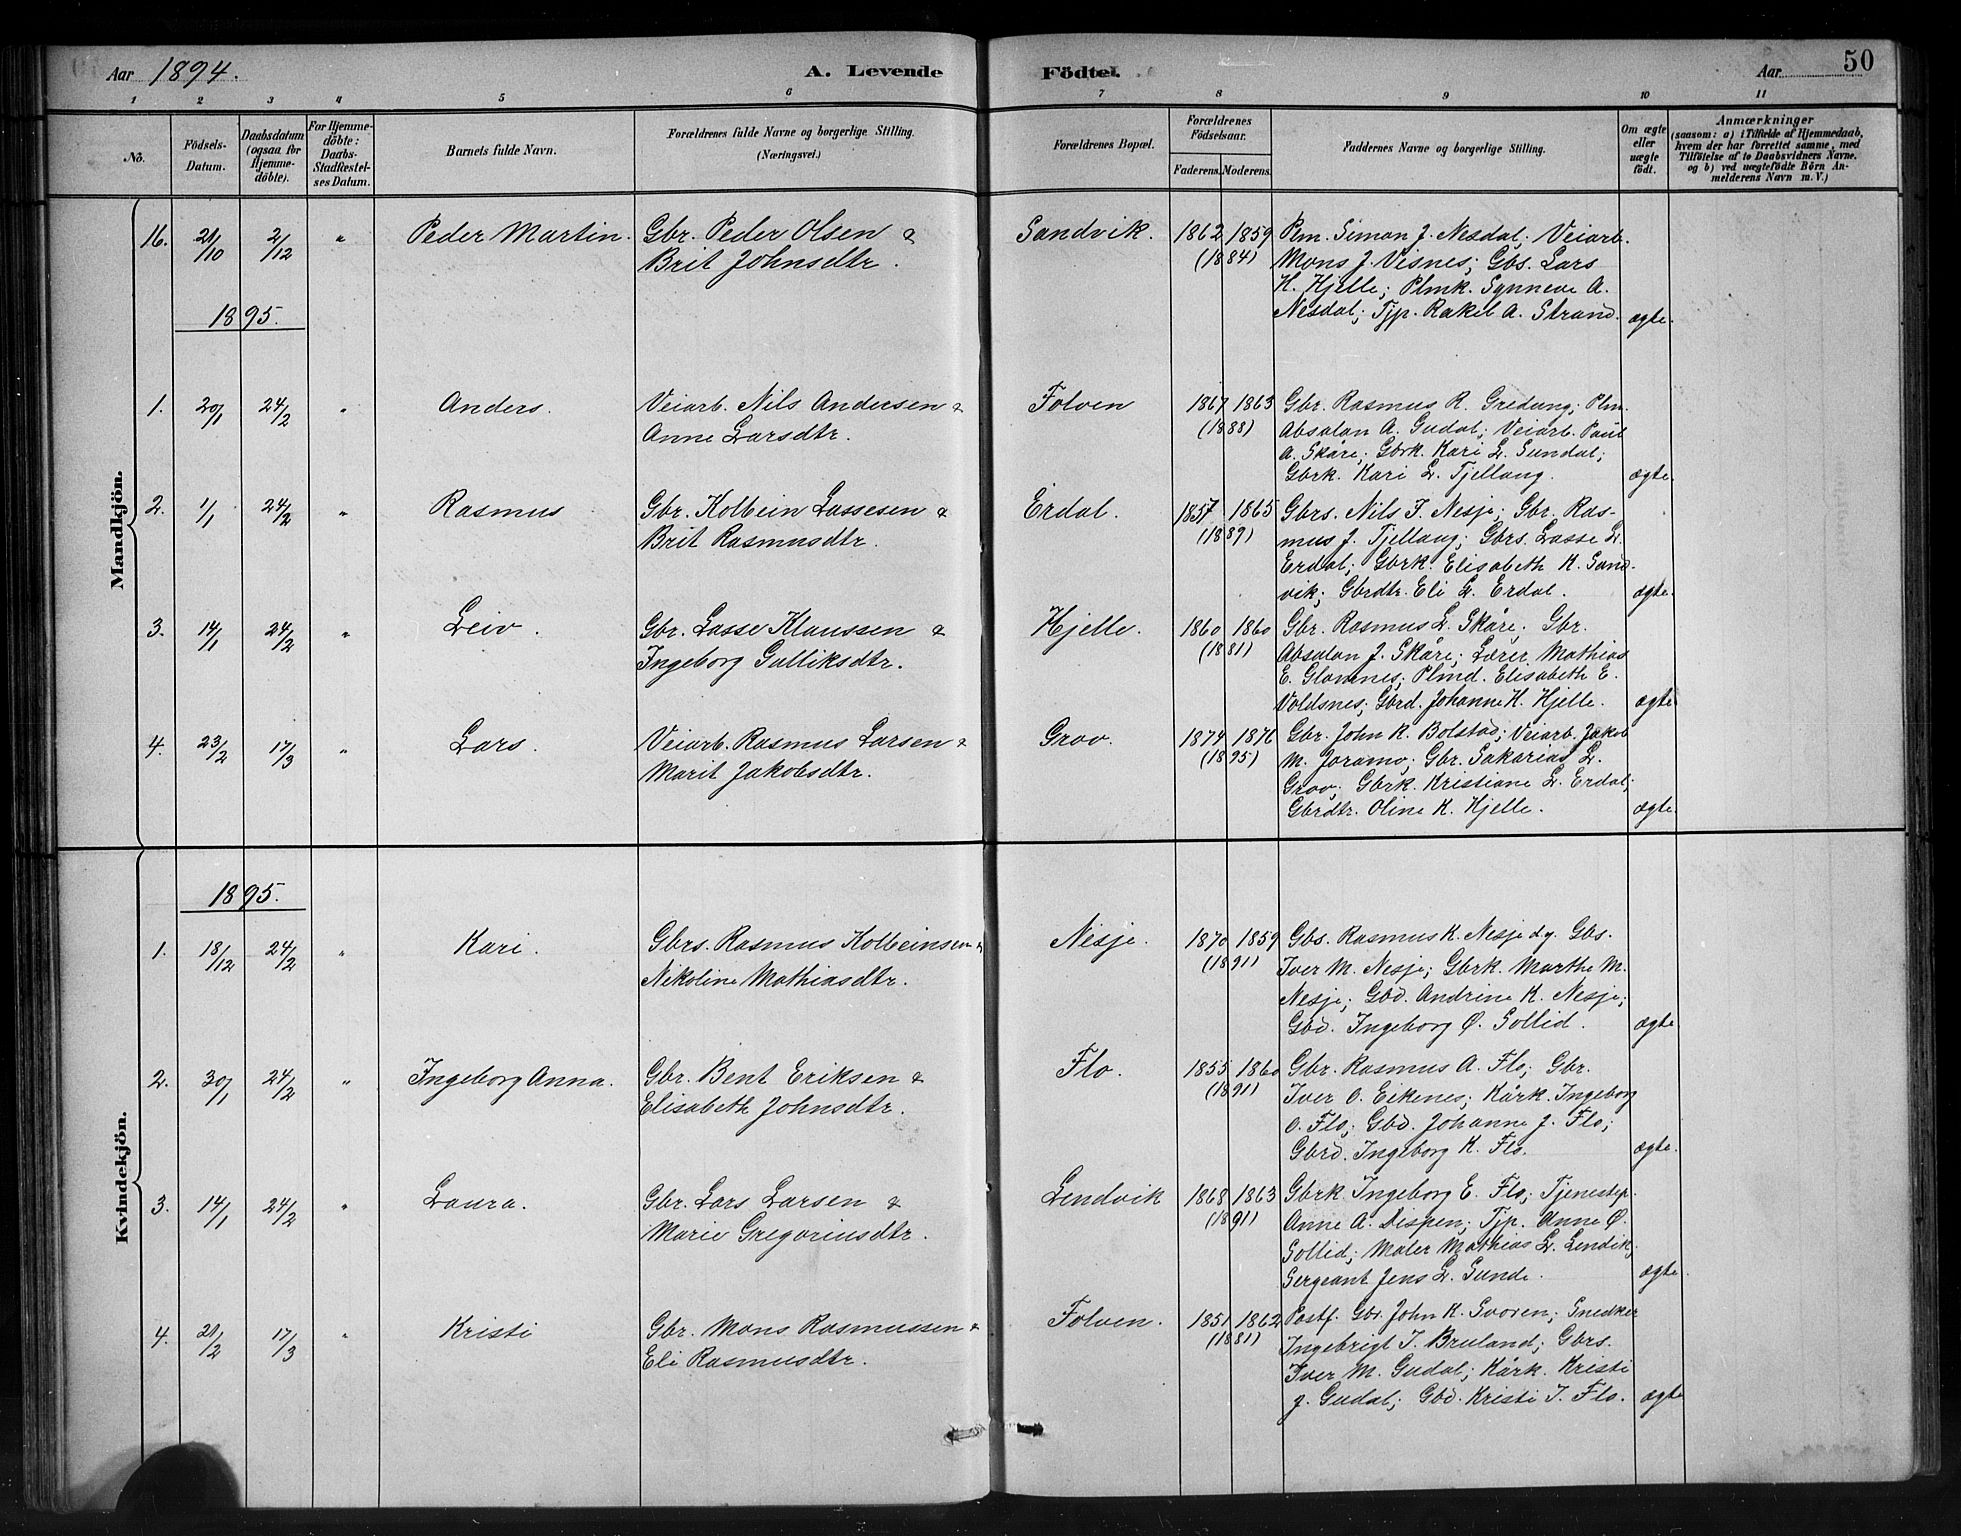 Aar 1894.
A. Levende Födte.
Aar 50
1 2 3 4 5 6 7 8 9 10 11
No.
Födsels-Datum.
Daabsdatum (ogsaa for Hjemme-döbte).
For Hjemme-döbte: Daabs-Stadfæstel-ses Datum.
Barnets fulde Navn.
Forældrenes fulde Navne og borgerlige Stilling. (Næringsvei.)
Forældrenes Bopæl.
Forældrenes Födselsaar.
Faderens. Moderens.
Faddernes Navne og borgerlige Stilling.
Om ægte eller uægte födt.
Anmærkninger
(saasom: a) i Tilfælde af Hjemmedaab,
hvem der har forrettet samme, med
Tilföielse af to Daabsvidners Navne.
og b) ved uægtefödte Börn An-
melderens Navn m. V.)
Mandkjön.
16. 21/10 2/12 " Peder Martin. Gbr. Peder Olsen & Sandvik. 1862 1859 Plm. Simon J. Nesdal; Veiarb.
Brit Johnsdtr. (1884) Mons J. Visnes; Gbs. Lars
H. Hjelle; Plmk. Synneve A.
1895. Nesdal; Tjp. Rakel A. Strand. ægte.
1. 20/1 24/2 " Anders. Veiarb. Nils Andersen & Folven 1867 1863 Gbr. Rasmus R. Gredung; Plm.
Anne Larsdtr. (1888) Absalon A. Gudal; Veiarb. Paul
A. Skåre; Gbrk. Kari L. Sundal;
Gbrk. Kari L. Tjellaug. ægte.
2. 1/1 24/2 " Rasmus Gbr. Kolbein Lassesen & Erdal. 1857 1865 Gbrs. Nils J. Nesje; Gbr. Ras-
Brit Rasmusdtr. (1889) mus J. Tjellaug; Gbrs. Lasse L.
Erdal; Gbrk. Elisabeth K. Sand-
vik; Gbrdtr. Eli L. Erdal. ægte.
3. 14/1 24/2 " Leiv. Gbr. Lasse Klaussen & Hjelle. 1860 1860 Gbr. Rasmus L. Skåre. Gbr.
Ingeborg Gulliksdtr. (1881) Absalon J. Skåre; Lærer Mathias
E. Glomnes; Plmd. Elisabeth E.
Voldsnes; Gbrd. Johanne K. Hjelle. ægte
4. 23/2 17/3 " Lars. Veiarb. Rasmus Larsen & Grov. 1874 1876 Gbr. John R. Bolstad; Veiarb. Jakob
Marit Jakobsdtr. (1895) M. Joramo; Gbr. Sakarias L.
Grov; Gbrk. Kristiane L. Erdal;
Gbrdtr. Oline K. Hjelle. ægte.
Kvindekjön.
1895.
1. 18/12 24/2 " Kari. Gbrs. Rasmus Kolbeinsen & Nesje. 1870 1859 Gbs. Rasmus K. Nesje d.y. Gbs.
Nikoline Mathiasdtr. (1891) Iver M. Nesje; Gbrk. Marthe M.
Nesje; Gbd. Andrine K. Nesje;
Gbd. Ingeborg Ø. Sollid. ægte.
2. 30/1 24/2 " Ingeborg Anna. Gbr. Bent Eriksen & Flo. 1855 1860 Gbr. Rasmus A. Flo; Gbr.
Elisabeth Johnsdtr. (1891) Iver O. Eikenes; Kårk. Ingeborg
O. Flo; Gbd. Johanne J. Flo;
Gbrd. Ingeborg K. Flo. ægte.
3. 14/1 24/2 " Laura. Gbr. Lars Larsen & Lendvik 1868 1863 Gbrk. Ingeborg E. Flo; Tjenestep.
Marie Gregoriusdtr. (1891) Anne A. Dispen; Tjp. Anne Ø.
Sollid; Maler Mathias L. Lendik;
Sergeant Jens L. Sunde. ægte.
4. 21/2 17/3 " Kristi Gbr. Mons Rasmussen & Folven. 1851 1862 Postf. Gbr. John K. Svoren; Snedker
Eli Rasmusdtr. (1881) Ingebrigt J. Bruland; Gbrs.
Iver M. Gudal; Kårk. Kristi
J. Gudal; Gbd. Kristi J. Flo. ægte